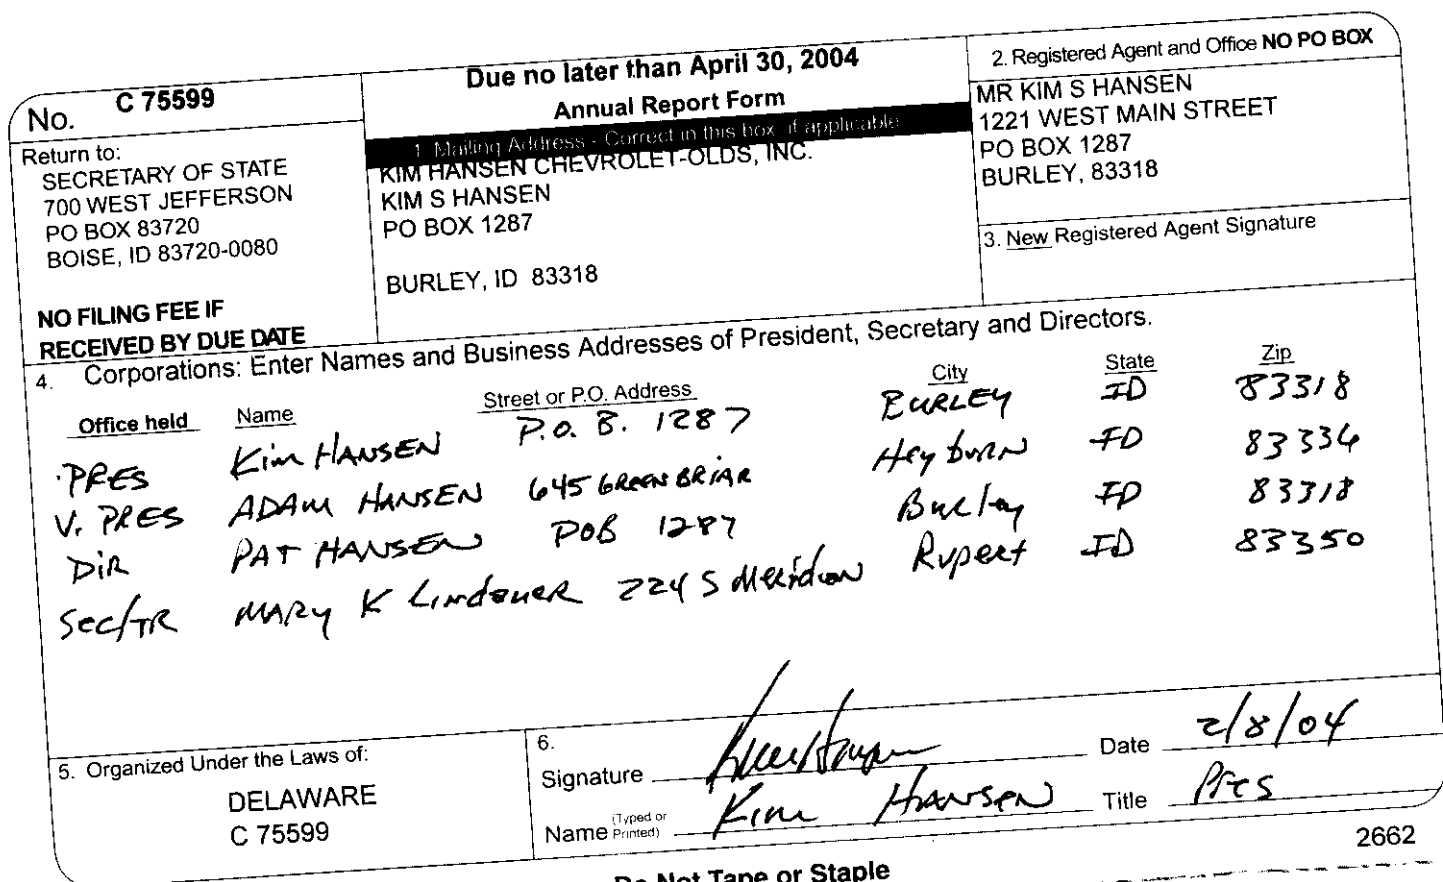 No. C 75599
Return to:
SECRETARY OF STATE
700 WEST JEFFERSON
PO BOX 83720
BOISE, ID 83720-0080
NO FILING FEE IF
RECEIVED BY DUE DATE
Due no later than April 30, 2004
Annual Report Form
1. Mailing Address - Correct in this box, if applicable
KIM HANSEN CHEVROLET-OLDS, INC.
KIM S HANSEN
PO BOX 1287
BURLEY, ID 83318
2. Registered Agent and Office NO PO BOX
MR KIM S HANSEN
1221 WEST MAIN STREET
PO BOX 1287
BURLEY, 83318
3. New Registered Agent Signature
4. Corporations: Enter Names and Business Addresses of President, Secretary and Directors.
Office held Name Street or P.O. Address City State Zip
PRES Kim HANSEN P.O. B. 1287 BURLEY ID 83318
V. PRES ADAM HANSEN 645 GREEN BRIAR Heyburn ID 83336
DiR PAT HANSEN POB 1287 Burley ID 83318
Sec/TR MARY K Lindauer 224 S Meridian Rupert ID 83350
5. Organized Under the Laws of:
DELAWARE
C 75599
6.
Signature Kim Hansen Date 2/8/04
Name (Typed or Printed) Kim HANSEN Title Pres
2662
Do Not Tape or Staple